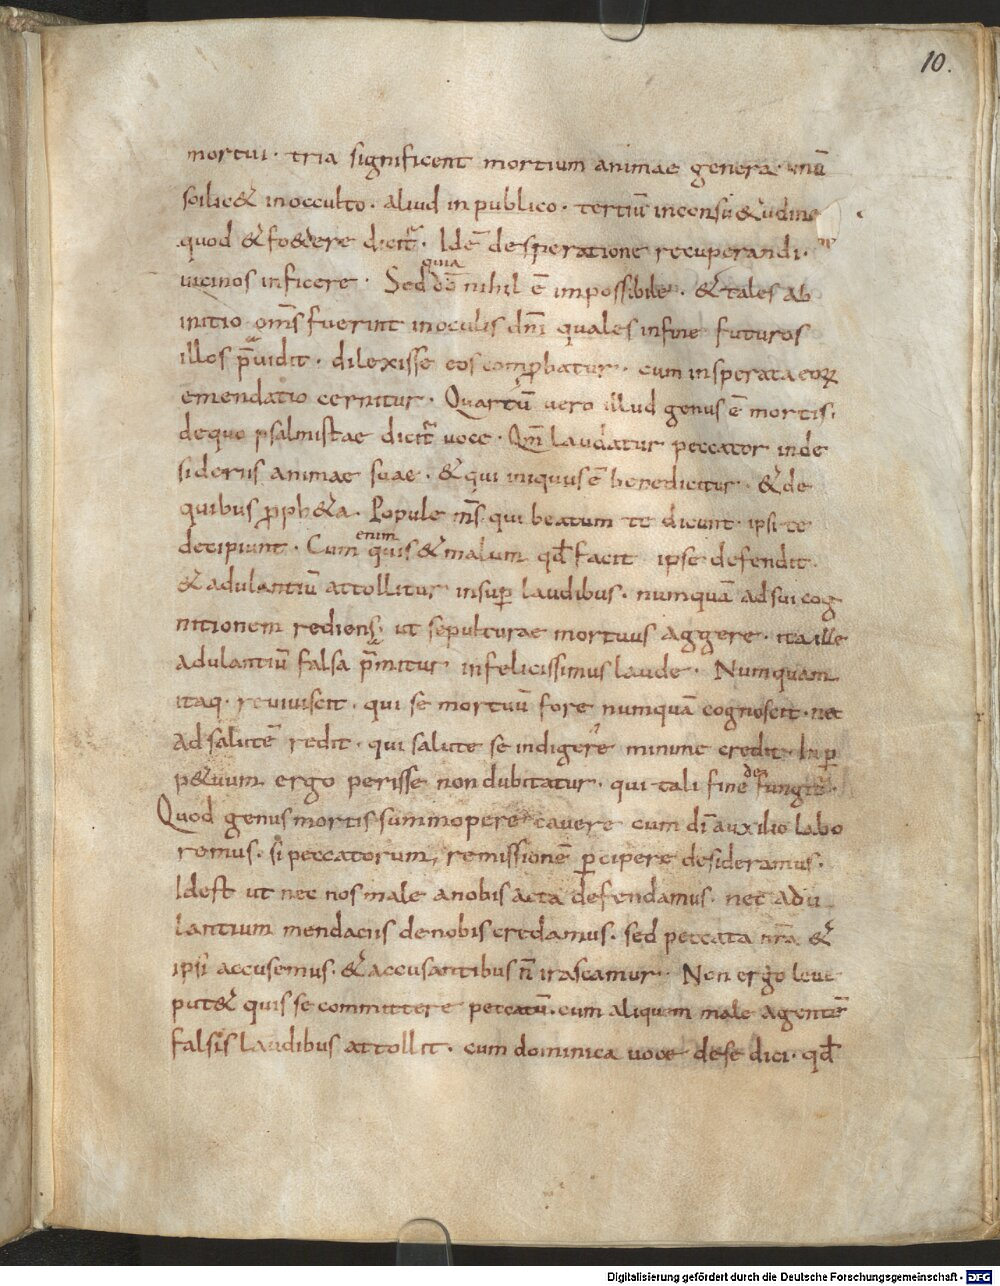 10.
mortui · tria significent mortium animae genera · unū
scilic& in occulto · aliud in publico · tertiū in consu&udine
quod & foetere dicit᷑ · Idē desperatione recuperandi ·
vicinos inficere · Sed quia dō nihil ē impossibile · & tales ab
initio om̄s fuerint in oculis dn̄i quales in fine futuros
illos p̄vidit · dilexisse eos comprobatur · cum insperata eoꝝ
emendatio cernitur · Quartū vero illud genus ē mortis ·
de quo psalmistae dicit᷑ voce · Qm̄ laudatur peccator in de
sideriis animae suae · & qui iniquus ē benedicitur · & de
quibus proph&a · Popule m̄s qui beatum te dicunt · ipsi te
decipiunt · Cum enim quis & malum qđ facit ipse defendit
& adulantiū attollitur insuꝑ laudibus · numquā ad sui cog
nitionem rediens · ut sepulturae mortuus aggere · ita ille
adulantiū falsa p̄mitur infelicissimus laude · Numquam
itaq· reviviscit · qui se mortuū fore numquā cognoscit · nec
ad salutē redit · qui salute se indigere minime credit · In ꝑ
p&uum ergo perisse non dubitatur · qui tali fine defungit᷑ ·
Quod genus mortis summopere cavere cum dī auxilio labo
remus · si peccatorum remissionē ꝑcipere desideramus ·
Id est ut nec nos male a nobis acta defendamus · nec adu
lantium mendaciis de nobis credamus · sed peccata nr̄a &
ipsi accusemus · & accusantibus n̄ irascamur · Non ergo leve
put& quis se committere peccatū · cum aliquem male agentē
falsis laudibus attollit · cum dominica voce de se dici · qđ
Digitalisierung gefördert durch die Deutsche Forschungsgemeinschaft - DFG